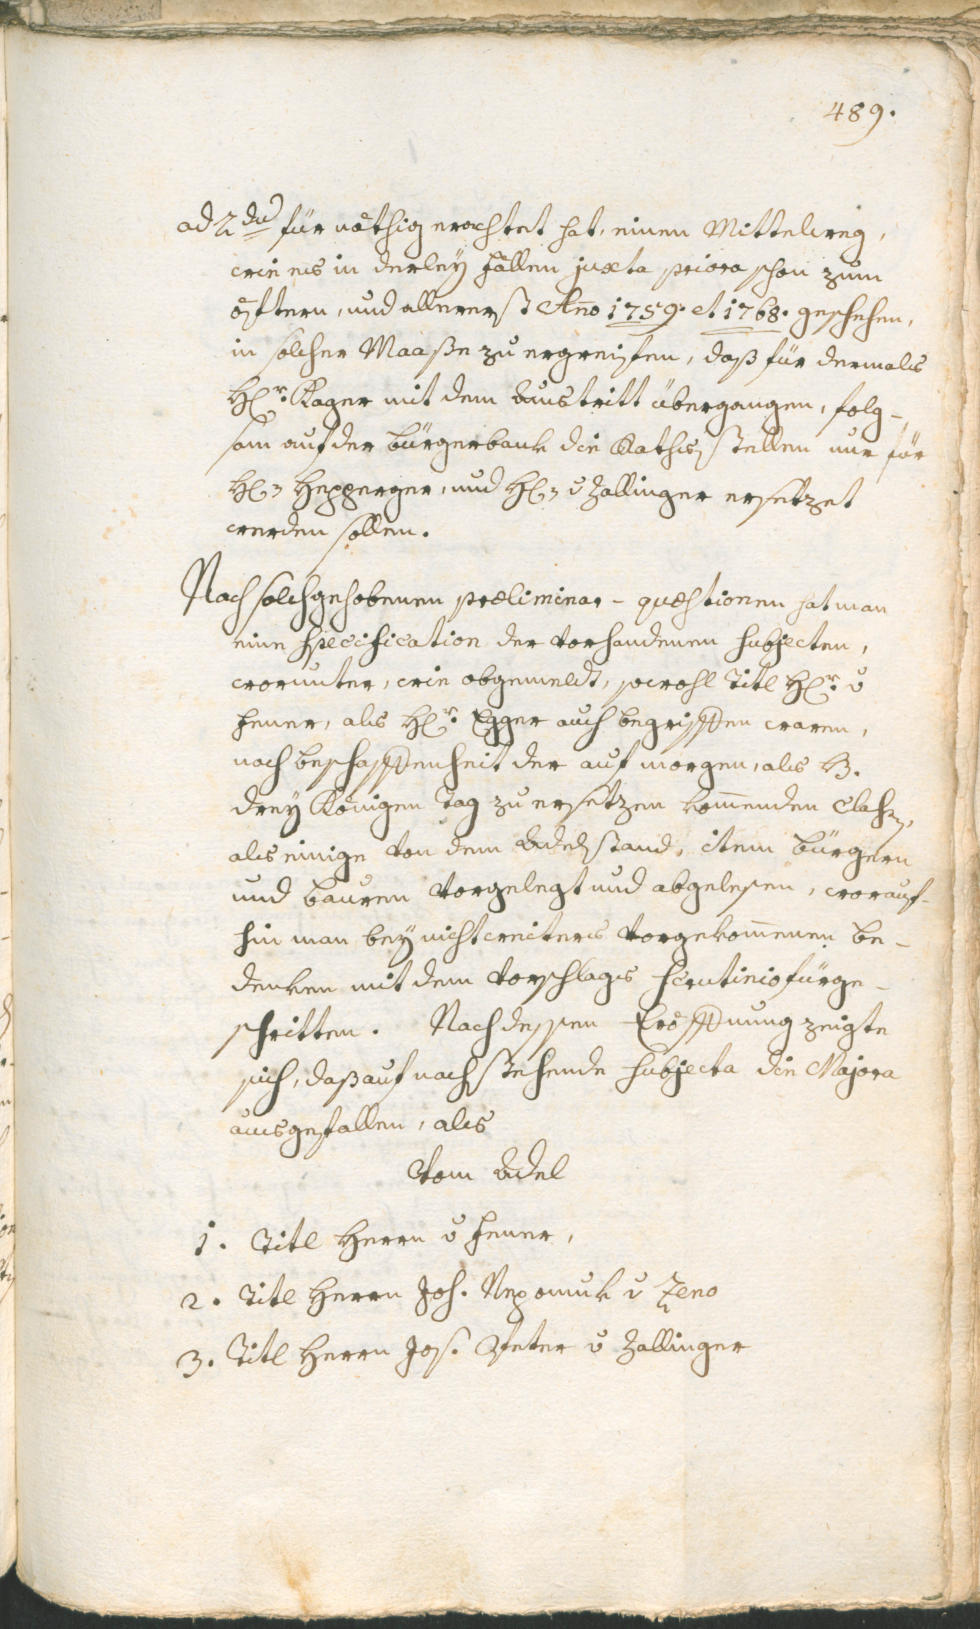 489.
ad 2dũ für nöthig erachtet hat, einen Mittelweg,
wie es in derley Fällen juxta priora schon zum
öftern, und allererst Año 1759. et 1768. geschehen,
in solcher Maaße zu ergreifen, daß für dermals
Hr. Kager mit dem Austritt übergangen, folg-
sam auf der Bürgerbank die Rathsstellen nur für
H. Hepperger, und H. v Zallinger ersetzet
werden sollen.
Nach solch gehobenen præliminar-quæstionen hat man
eine Specification der vorhandenen Subjecten,
worunter, wie obgemeldt, sowohl Titl Hr. v
Hener, als Hr. Egger auch begriffen waren,
nach beschaffenheit der auf morgen, als H.
drey Königen Tag zu ersetzen kom̄enden Classen,
als einige von dem Adelstand, item bürgern
und bauren vorgelegt und abgelesen, worauf-
hin man bey nicht weiters vorgekom̄enen be-
denken mit dem Vorschlags Scrutinio fürge-
schritten. Nach dessen Eröffnung zeigte
sich, daß auf nachstehende Subjecta die Majora
ausgefallen, als
Vom Adel
1. Titl Herrn v Hener,
2. Titl Herrn Joh. Nepomuk v Zeno
3. Titl Herrn Jos. Peter v Zallinger